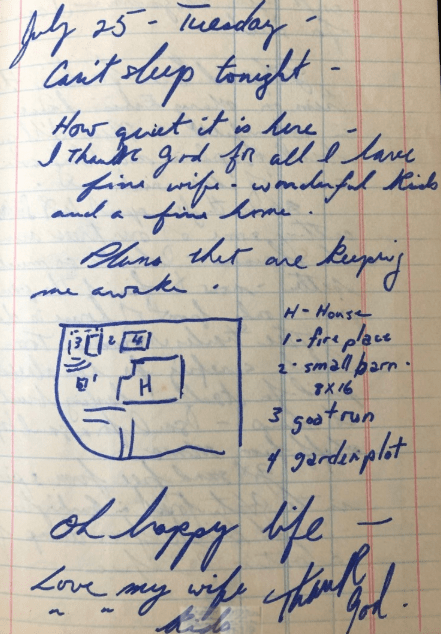 July 25 - Tuesday -
Can't sleep tonight -
How quiet it is here -
I thank God for all I have
fine wife - wonderful kids
and a fine home.
Plans that are keeping
me awake.
H - House
1 - fire place
2 - small barn.
8x16
3 goat run
4 garden plot
3 2 4
1
H
Oh happy life -
Love my wife thank
" " kids God.